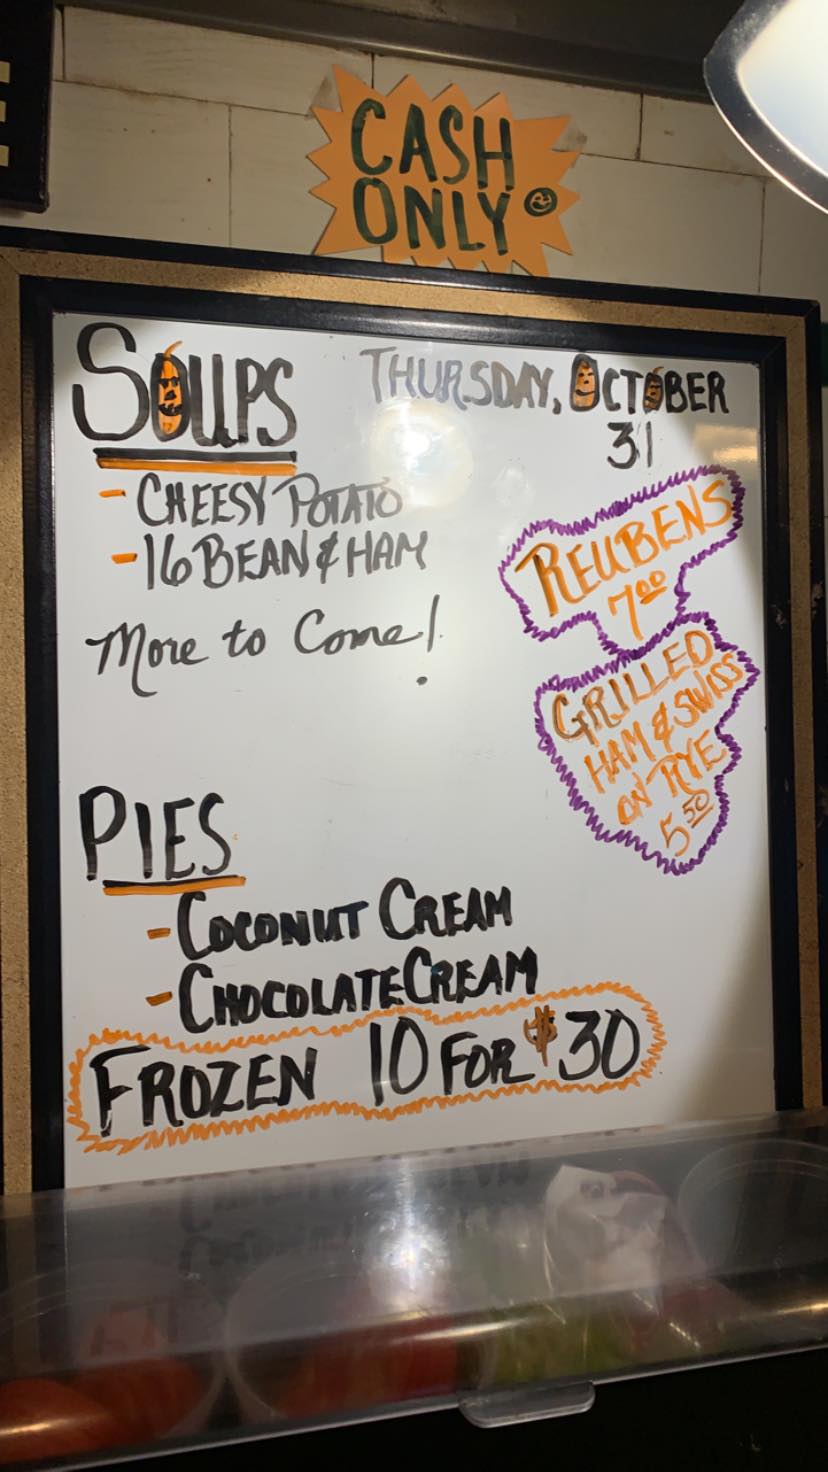 CASH
ONLY
SOUPS
THURSDAY, OCTOBER
31
- CHEESY POTATO
- 16 BEAN & HAM
More to Come!
REUBENS
7.00
GRILLED
HAM & SWISS
ON RYE
5.50
PIES
- COCONUT CREAM
- CHOCOLATE CREAM
FROZEN 10 FOR $30